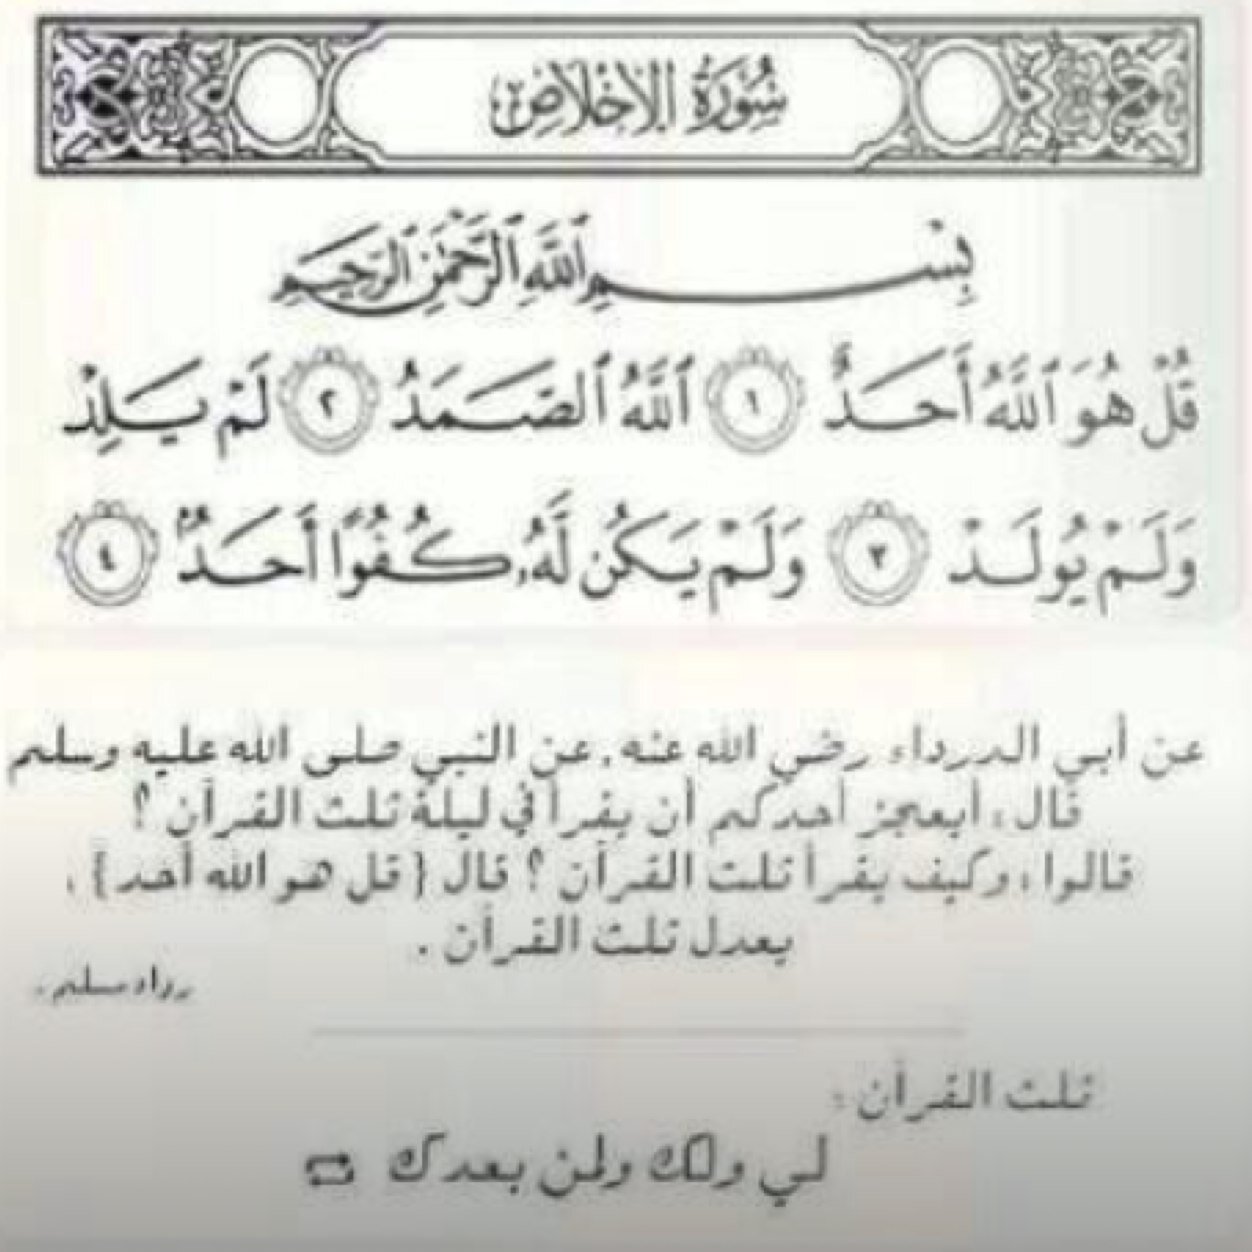 سُورَةُ الإِخْلَاصِ
بِسْمِ ٱللَّهِ ٱلرَّحْمَٰنِ ٱلرَّحِيمِ
قُلْ هُوَ ٱللَّهُ أَحَدٌ ١ ٱللَّهُ ٱلصَّمَدُ ٢ لَمْ يَلِدْ
وَلَمْ يُولَدْ ٣ وَلَمْ يَكُن لَّهُۥ كُفُوًا أَحَدٌۢ ٤
عن أبي الدرداء رضي الله عنه، عن النبي صلى الله عليه وسلم
قال: أيعجز أحدكم أن يقرأ في ليلة ثلث القرآن ؟
قالوا: وكيف يقرأ ثلث القرآن ؟ قال { قل هو الله أحد } .
يعدل ثلث القرآن .
رواه مسلم .
ثلث القرآن :
لي ولك ولمن بعدك